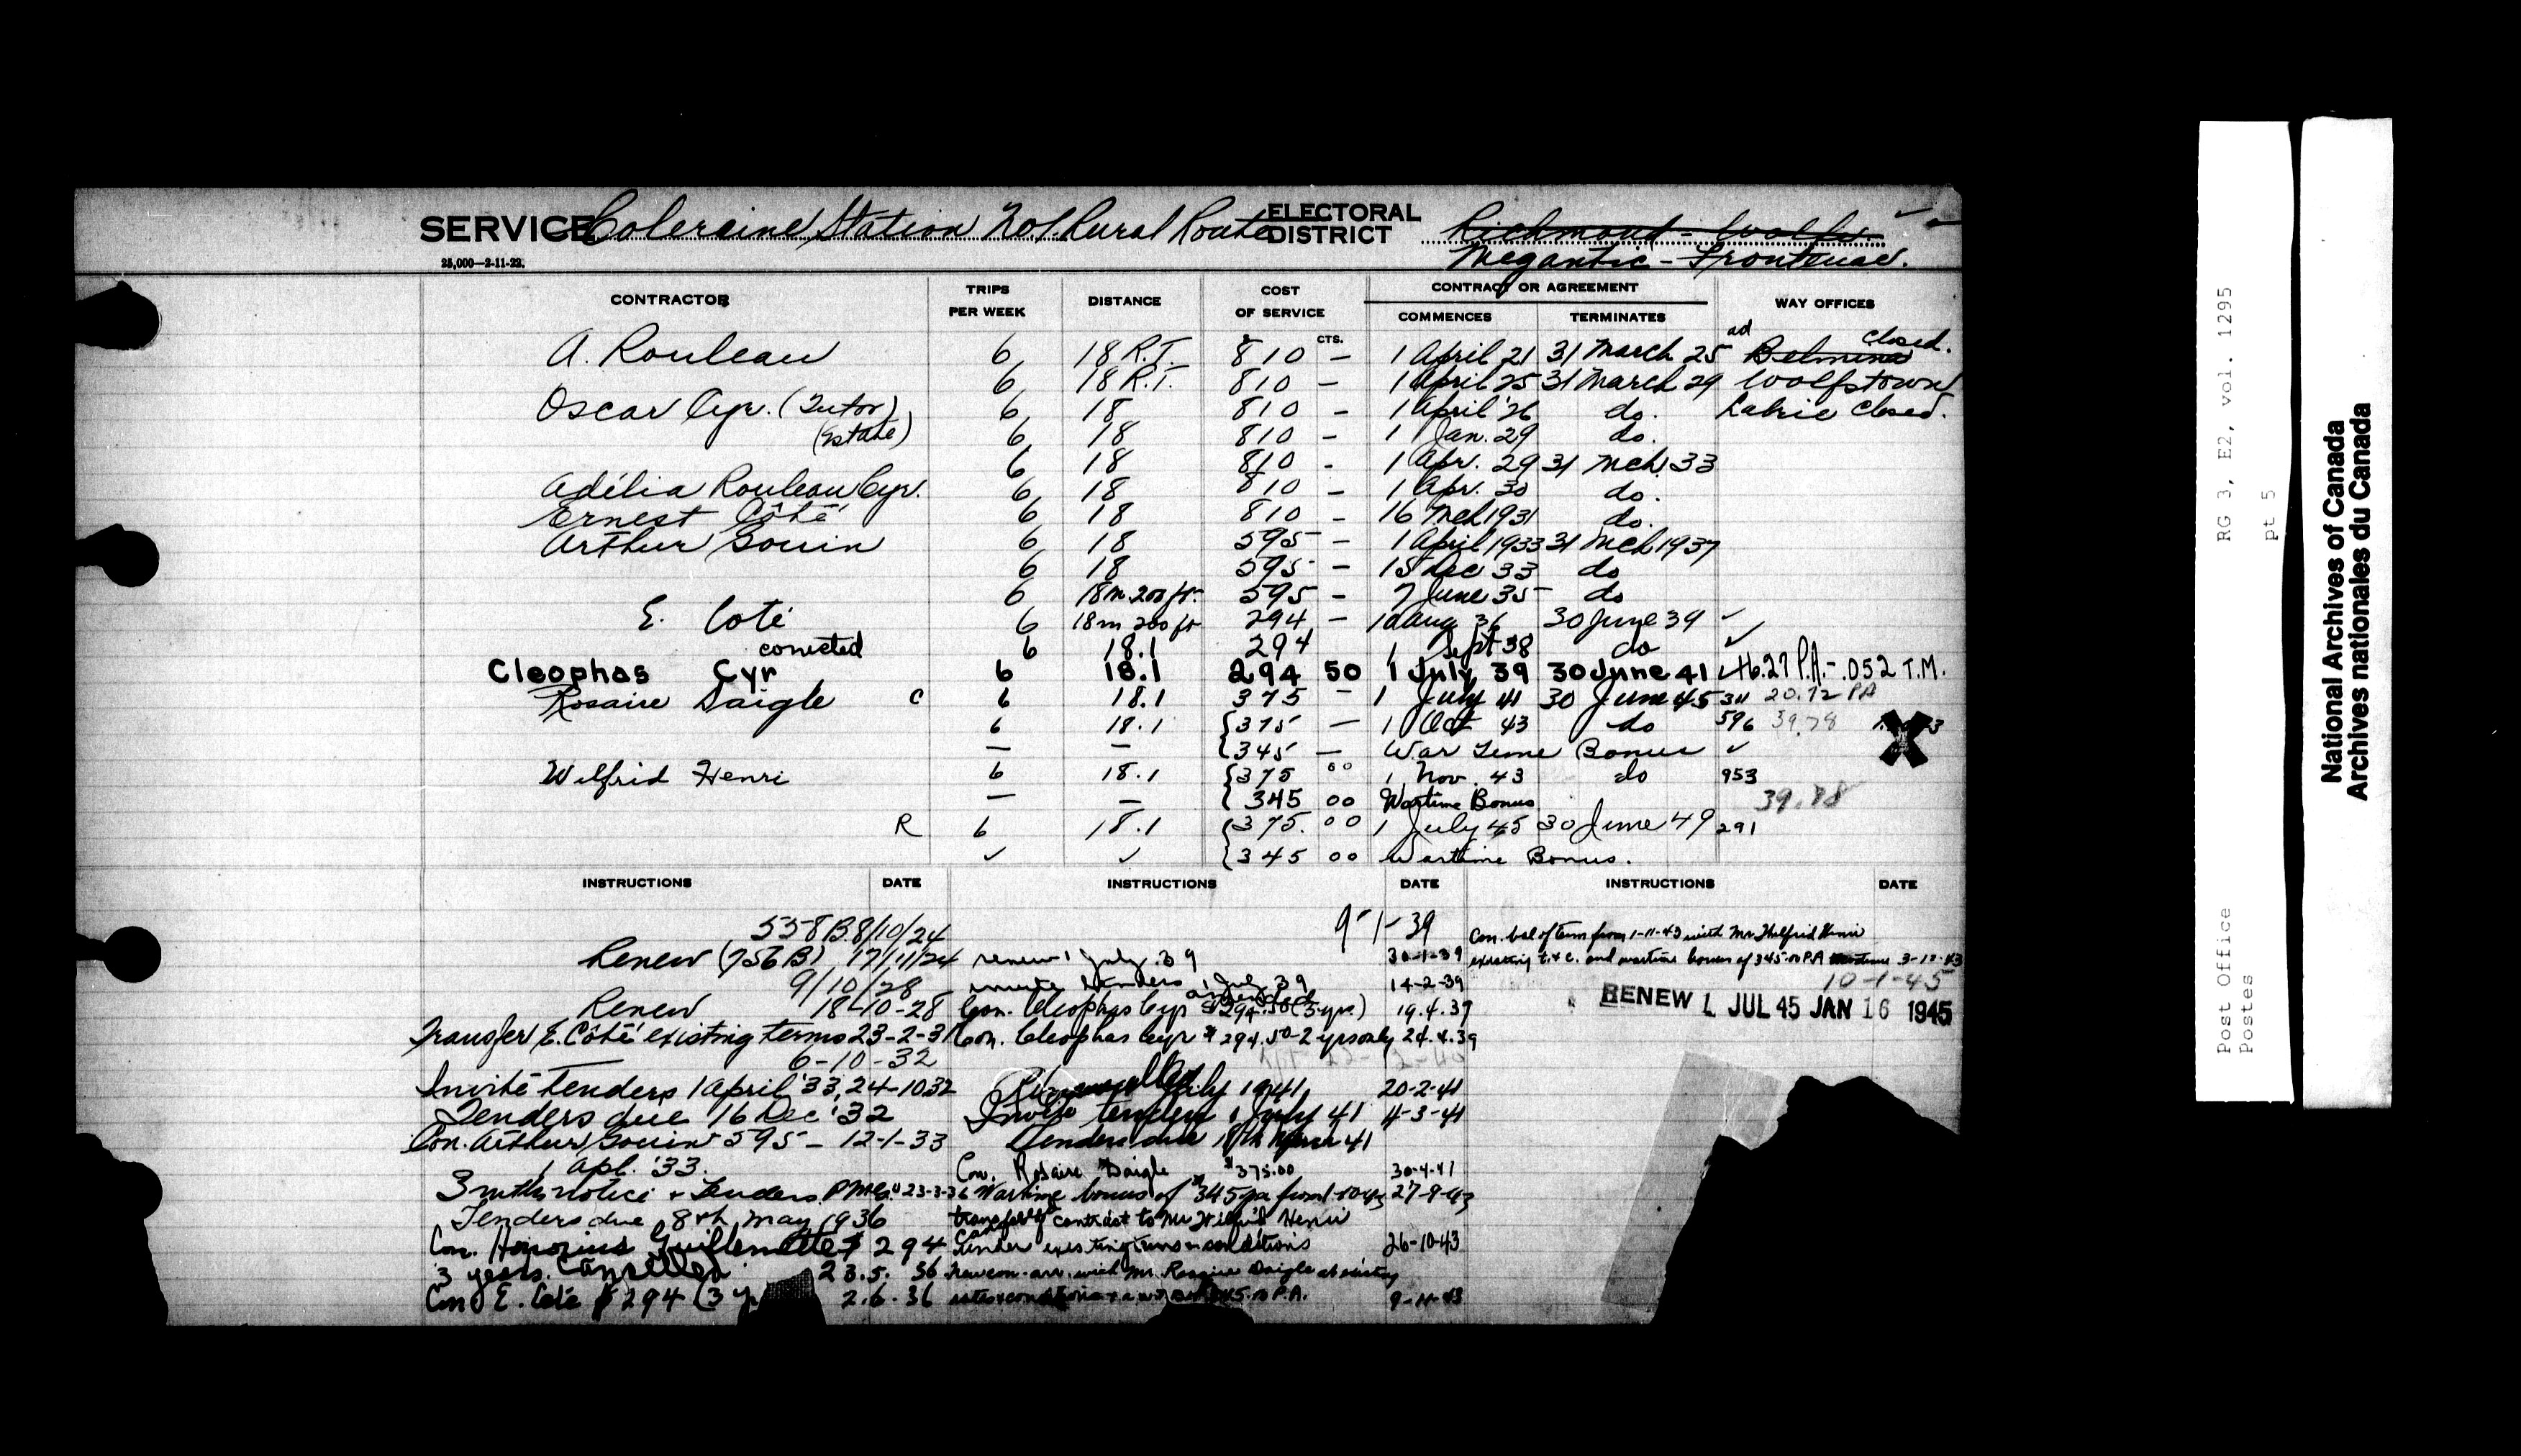 SERVICE Coleraine Station No 1 Rural Route ELECTORAL DISTRICT Richmond - Wolfe
25,000—2-11-22. Megantic - Frontenac.
CONTRACTOR TRIPS PER WEEK DISTANCE COST OF SERVICE CONTRACT OR AGREEMENT COMMENCES TERMINATES WAY OFFICES
A. Rouleau 6 18 R.T. $ 810 CTS. — 1 April 21 31 March 25 ad Belmina closed.
6 18 R.T. 810 — 1 April 25 31 March 29 Wolfstown
Oscar Cyr. (Tutor) 6 18 810 — 1 April '26 do. Labrie closed.
(Estate) 6 18 810 — 1 Jan. 29 do.
6 18 810 - 1 Apr. 29 31 Mch 33
Adélia Rouleau Cyr. 6 18 810 — 1 Apr. 30 do.
Ernest Côté 6 18 810 — 16 Mch 1931 do.
Arthur Gouin 6 18 595 — 1 April 1933 31 Mch 1937
6 18 595 — 15 Dec 33 do
6 18m 200 ft. 595 — 7 June 35 do
E. Coté 6 18m 200 ft 294 — 10 Aug 36 30 June 39 ✓
corrected 6 18.1 294 1 Sept 38 do ✓
Cleophas Cyr 6 18.1 294 50 1 July 39 30 June 41 46.27 P.A. - .052 T.M.
Rosaire Daigle C 6 18.1 375 — 1 July 41 30 June 45 311 20.72 PA
6 18.1 {375 — 1 Oct 43 do 596 39.78
— — {345 — War Time Bonus ✓
Wilfrid Henri 6 18.1 {375 00 1 Nov. 43 do 953
— — {345 00 Wartime Bonus 39.78
R 6 18.1 {375. 00 1 July 45 30 June 49 291
✓ ✓ {345 00 Wartime Bonus.
INSTRUCTIONS DATE INSTRUCTIONS DATE INSTRUCTIONS DATE
558 B 8/10/24
Renew (756 B) 17/11/24
9/10/28
Renew 18-10-28
Transfer E. Côté existing terms 23-2-31
6-10-32
Invite tenders 1 April '33, 24-10 32
Tenders due 16 Dec '32
Con. Arthur Gouin 595 — 12-1-33
1 Apl. '33.
3 mths notice + Tenders 23-3-36
Tenders due 8th May 1936
Con. Honorius Guillemette $ 294
3 years. Cancelled 23.5.36
Con E. Coté $ 294 (3 2.6.36
9-1-39
renew 1 July 39 30-1-39
invite tenders 1 July 39 14-2-39
Con. Cleophas Cyr $294.50 (3 yrs.) amended 19.4.39
Con. Cleophas Cyr $ 294.50 - 2 yrs only 24.4.39
cancelled July 1941 20-2-41
Invite tenders 1 July 41 4-3-41
Tenders due 18th March 41
Con. Rosaire Daigle $375.00 30-4-41
Wartime bonus of $345 pa from 1-10-43 27-9-43
transfer of contract to Mr Wilfrid Henri
under existing terms & conditions 26-10-43
New con. arr. with Mr. Rosaire Daigle at existing
rates & conditions P.A. 9-11-43
Con. bal of term from 1-11-43 with Mr. Wilfrid Henri
existing t. & c. and wartime bonus of 345.00 P.A. 3-12-43
10-1-45
RENEW 1 JUL 45 JAN 16 1945
RG 3, E2, vol. 1295
pt 5
Post Office
Postes
National Archives of Canada
Archives nationales du Canada